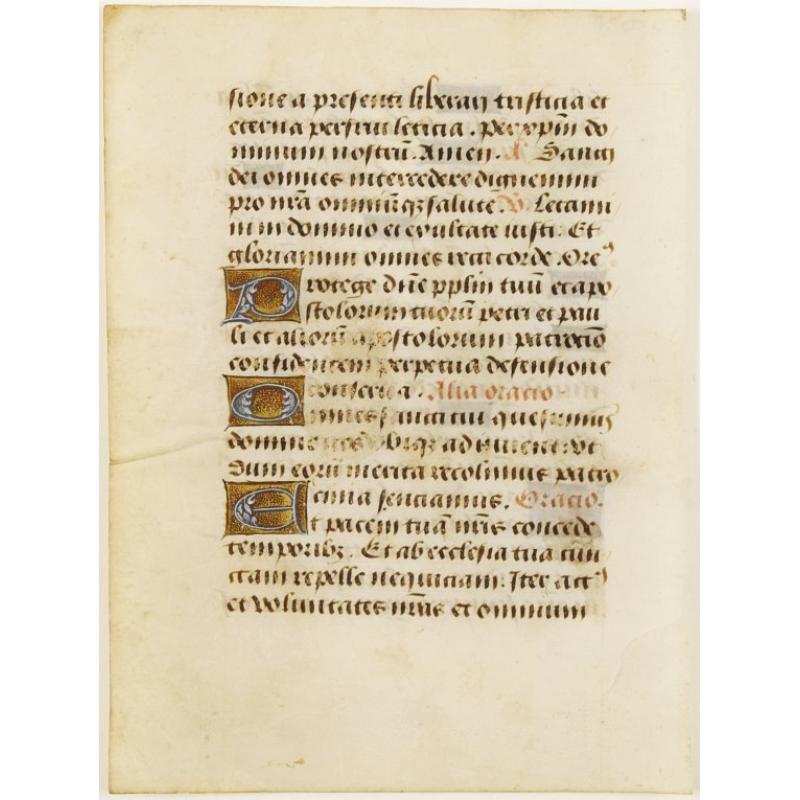 sione a presenti liberari tristicia et
eterna perfrui leticia. Per xpm̄ do
minum nostrū. Amen. A Sancti
dei omnes intercedere dignemini
pro nrā omniūqz salute. V. Letami
ni in domino et exultate iusti. Et
gloriamini omnes recti corde. Ore
Protege dn̄e pplm̄ tuū et apo
stolorum tuorū petri et pau
li et aliorū apostolorum patrocīo
confidentem perpetua defensione
conserua. Alia oracio.
Omnes sancti tui quesumus
domine nos vbiqz adiuuent vt
dum eorū merita recolimus patro
cinia senciamus. Oracio.
Et pacem tuā nrīs concede
temporibz. Et ab ecclesia tua cun
ctam repelle nequiciam. Iter act
et voluntates nrās et omnium